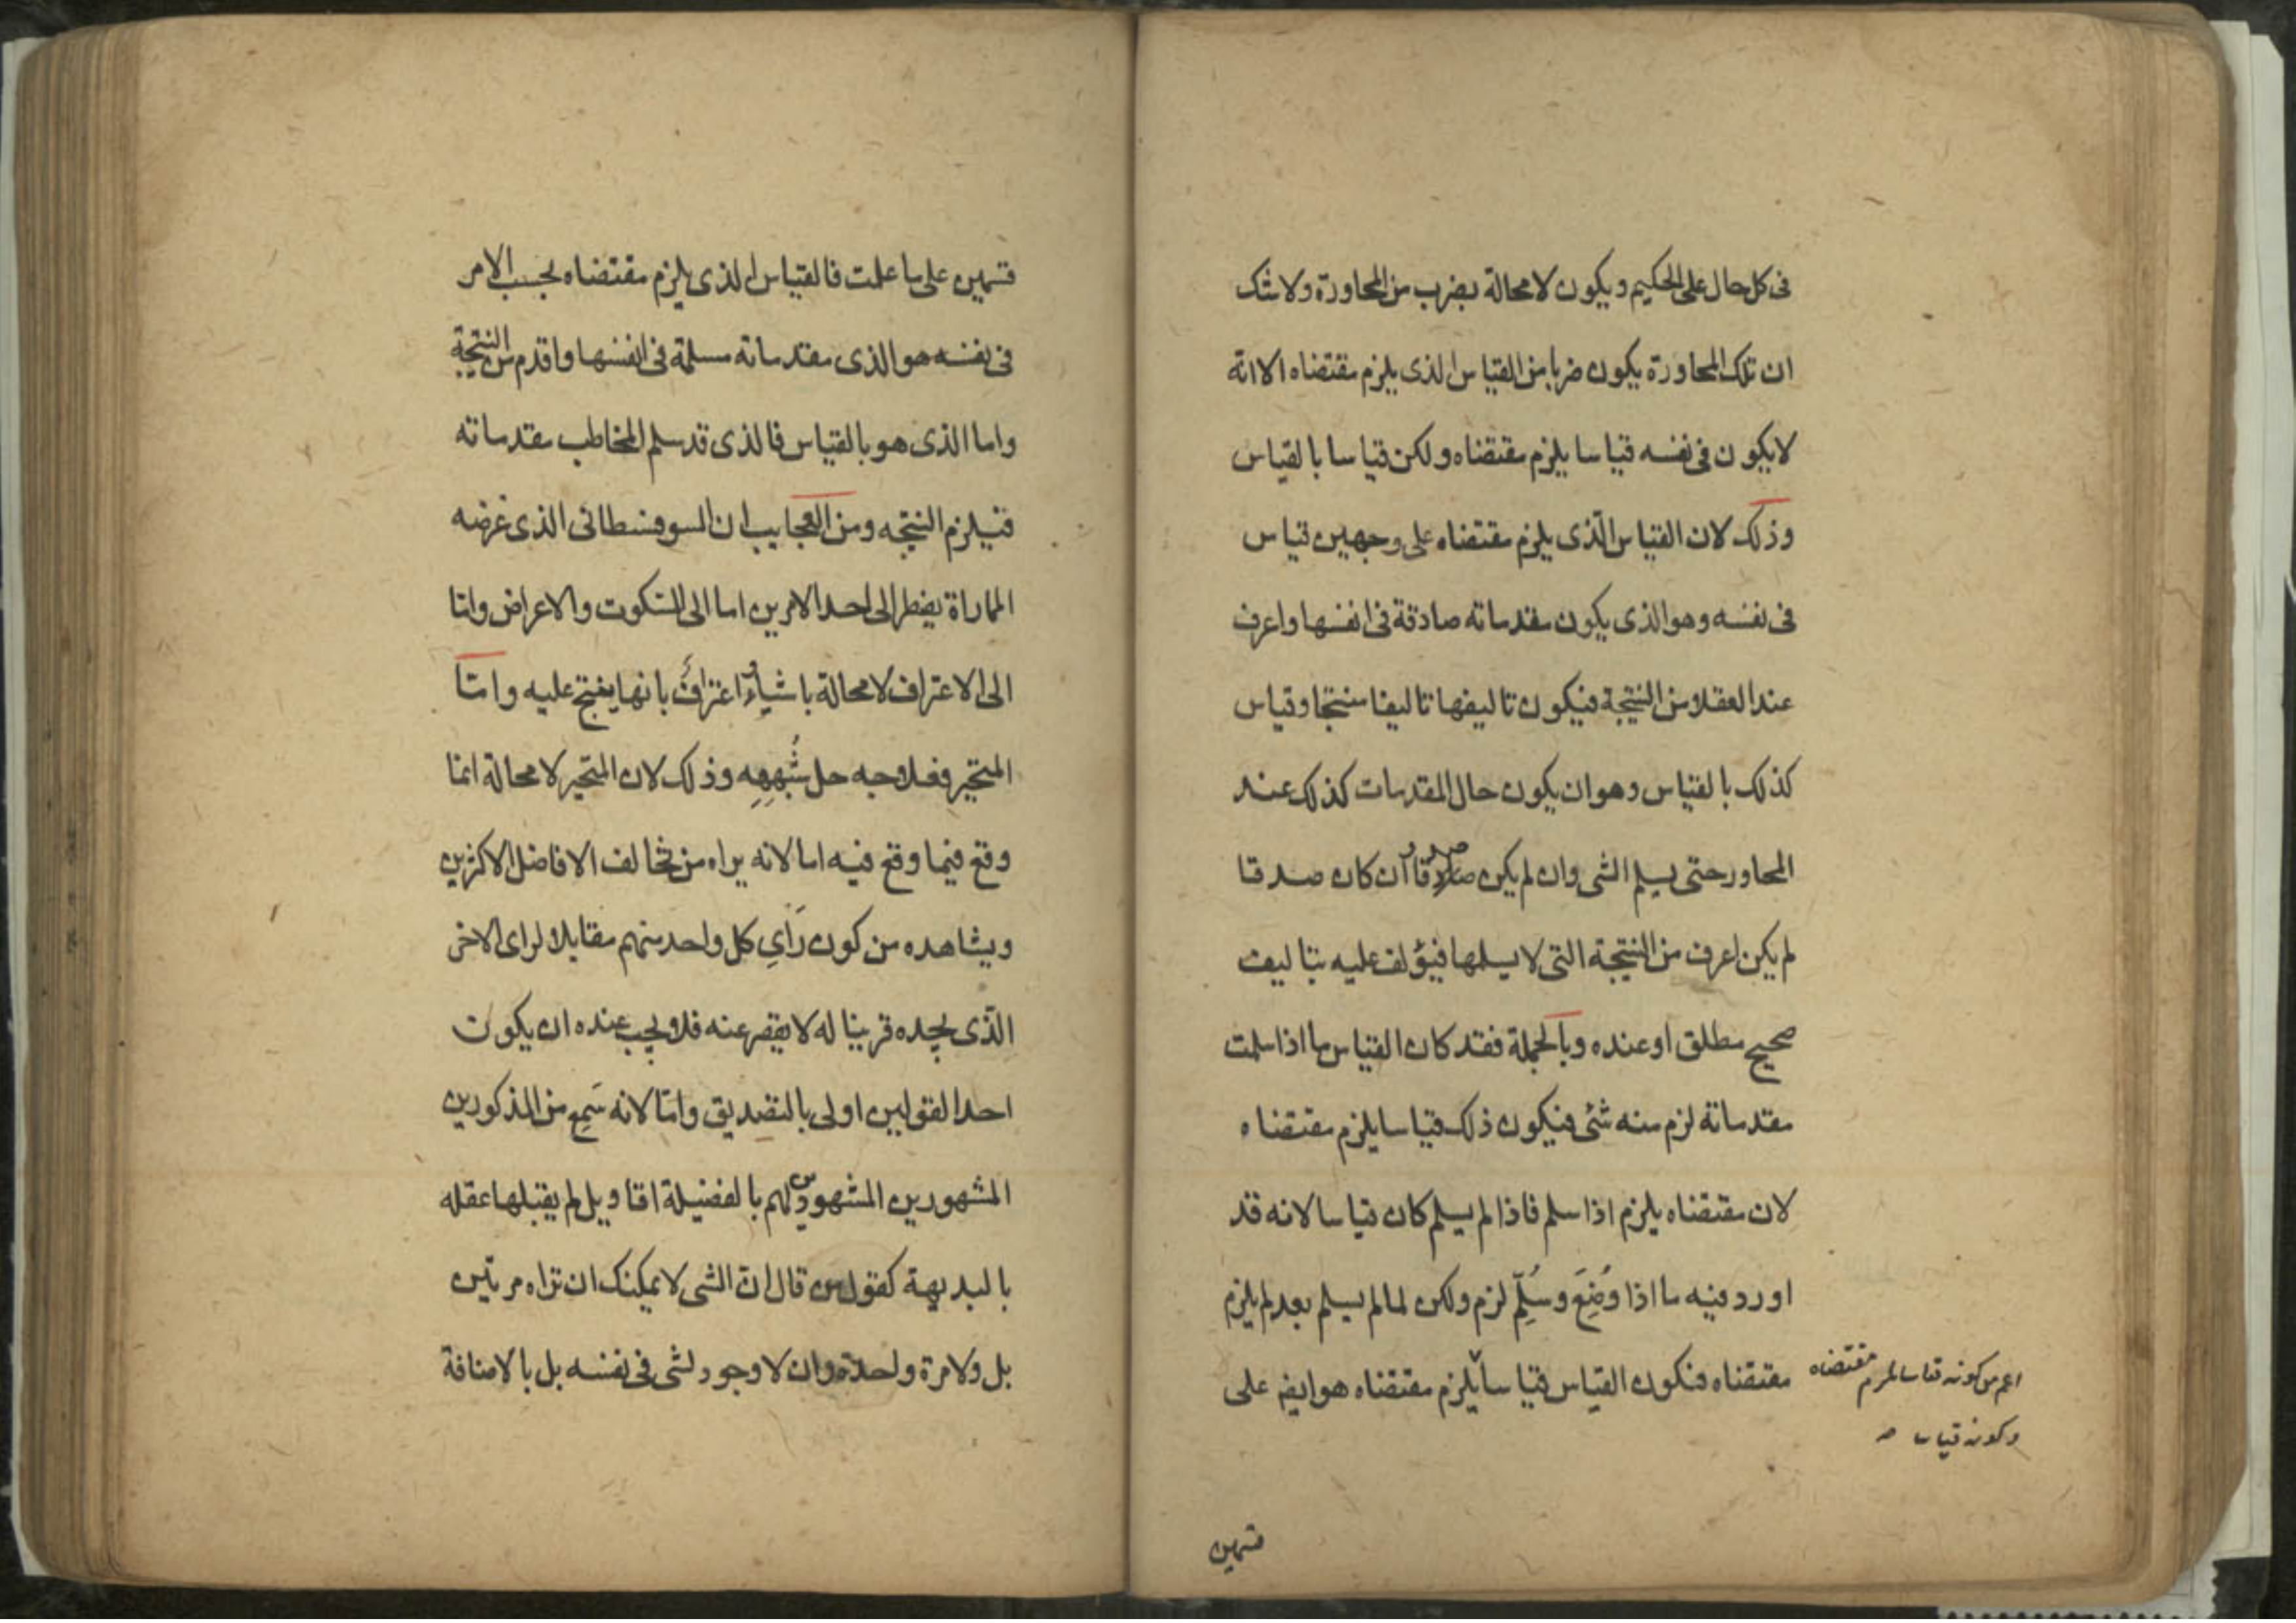 فى كل حال على الحكيم ويكون لا محالة بضرب من المحاورة ولا شك
ان تلك المحاورة يكون ضربا من القياس الذى يلزم مقتضاه الا انه
لايكون فى نفسه قياسا يلزم مقتضاه ولكن قياسا بالقياس
وذلك لان القياس الّذى يلزم مقتضاه على وجهين قياس
فى نفسه وهو الذى يكون مقدماته صادقة فى انفسها واعرف
عند العقلا من النتيجة فيكون تاليفها تاليفا منتجا وقياس
كذلك بالقياس وهو ان يكون حال المقدمات كذلك عند
المحاور حتى يسلم الشى وان لم يكن صدقا وان كان صدقا
لم يكن اعرف من النتيجة التى لا يسلمها فيؤلف عليه بتاليف
صحيح مطلق او عنده وبالجملة فقد كان القياس ما اذا سلمت
مقدماته لزم منه شئ فيكون ذلك قياسا يلزم مقتضاه
لان مقتضاه يلزم اذا سلم فاذا لم يسلم كان قياسا لانه قد
اورد فيه ما اذا وُضِعَ وسُلِّمَ لزم ولكن لما لم يسلم بعد لم يلزم
مقتضاه فيكون القياس قياسا يلزم مقتضاه هو ايضا على
اعم من كونه قياسا يلزم مقتضاه
وكونه قياسا
قسمين
قسمين على ما علمت فالقياس الذى يلزم مقتضاه بحسب الامر
فى نفسه هو الذى مقدماته مسلمة فى انفسها واقدم من النتيجة
واما الذى هو بالقياس فالذى قد سلم المخاطب مقدماته
فيلزم النتيجه ومن العجايب ان السوفسطائى الذى غرضه
المماراة يضطر الى احد الامرين اما الى السكوت والاعراض وامّا
الى الاعتراف لا محالة باشياء واعتراف بانها ينتج عليه وامّا
المتحير فعلاجه حل شُبَهِهِ وذلك لان المتحير لا محالة انما
وقع فيما وقع فيه اما لانه يراه من تخالف الافاضل الاكثرين
ويشاهده من كون رَأيِ كل واحد منهم مقابلا لراى الاخر
الّذى يجده قرينا له لا يقصر عنه فلا يجب عنده ان يكون
احد القولين اولى بالتصديق وامّا لانه سَمِع من المذكورين
المشهورين المشهود لهم بالفضيلة اقاويل لم يقبلها عقله
بالبديهة كقول من قال ان الشى لا يمكنك ان تراه مرتين
بل ولا مرة واحدة وان لا وجود لشى فى نفسه بل بالاضافة